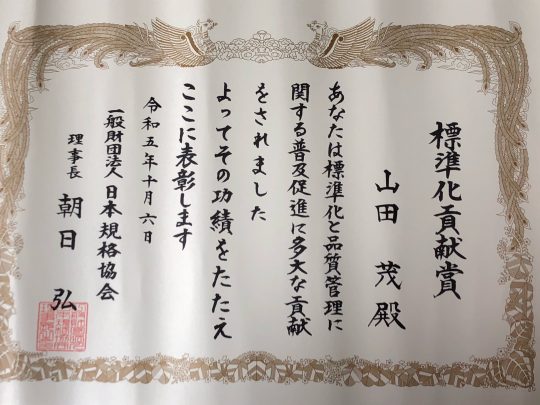 標準化貢献賞
山田 茂 殿
あなたは標準化と品質管理に
関する普及促進に多大な貢献
をされました
よってその功績をたたえ
ここに表彰します
令和五年十月六日
一般財団法人 日本規格協会
理事長 朝日 弘